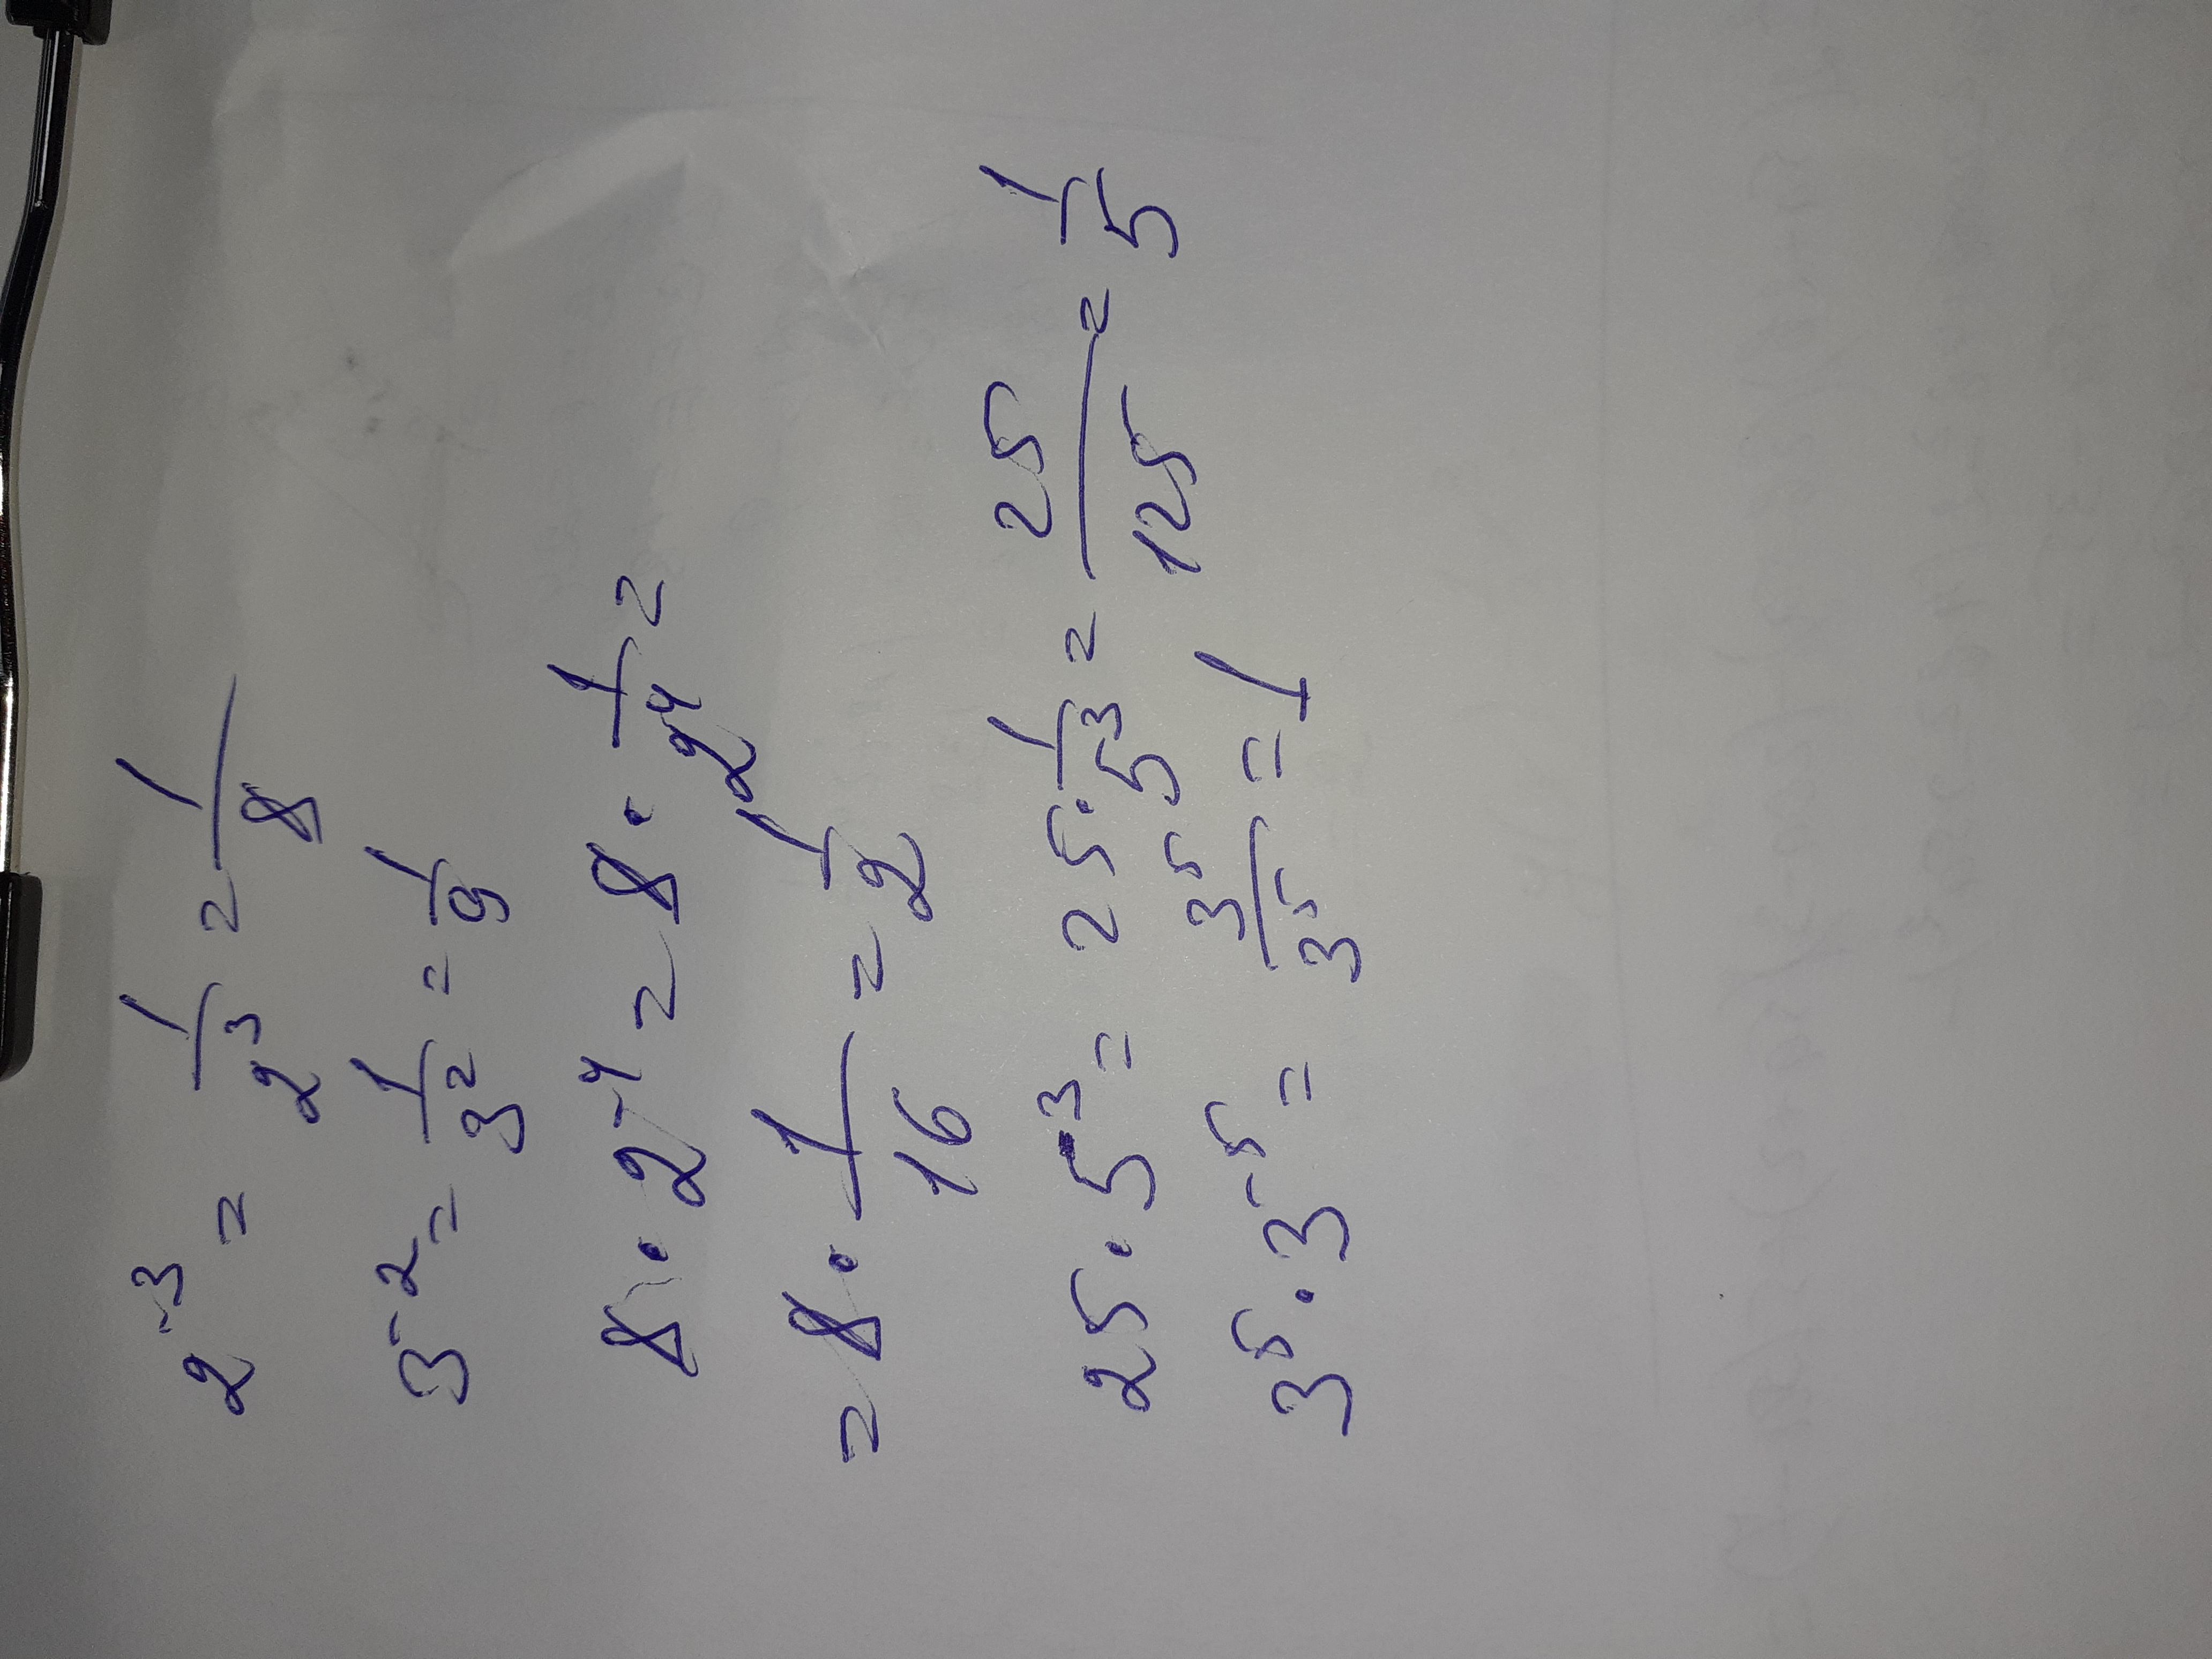 2⁻³ = 1/2³ = 1/8
3⁻² = 1/3² = 1/9
8 · 2⁻⁴ = 8 · 1/2⁴ =
= 8 · 1/16 = 1/2
25 · 5⁻³ = 25 · 1/5³ = 25/125 = 1/5
3⁵ · 3⁻⁵ = 3⁵/3⁵ = 1